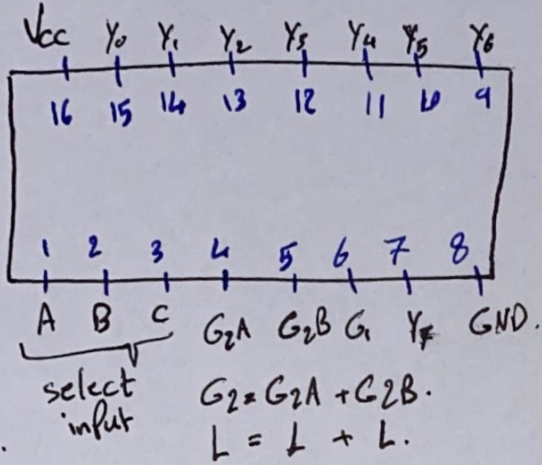 Vcc Y₀ Y₁ Y₂ Y₃ Y₄ Y₅ Y₆
16 15 14 13 12 11 10 9
1 2 3 4 5 6 7 8
A B C G₂A G₂B G₁ Y₇ GND.
select
input
G₂ = G₂A + G2B.
L = L + L.